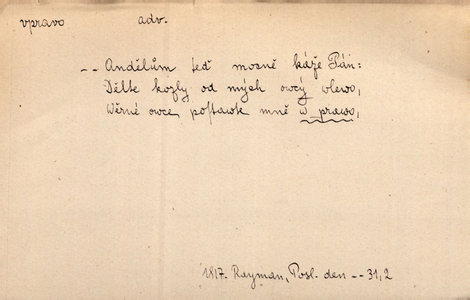 vpravo adv.
-- Andělům teď mocně káže Pán:
Dělte kozly od mých owcý wlewo,
Wěrné owce postawte mně w prawo,
1817. Rayman, Posl. den -- 31,2